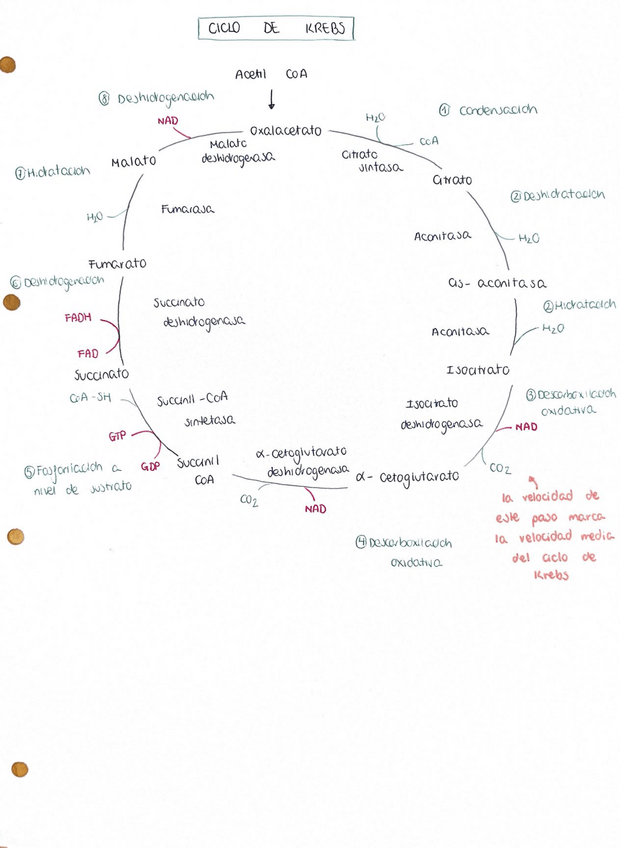 CICLO DE KREBS
Acetil CoA
⑧ Deshidrogenación
NAD
Oxalacetato
Malato
deshidrogenasa
H₂O
CoA
① Condensación
Citrato
sintasa
Citrato
② Deshidratación
Aconitasa
H₂O
cis- aconitasa
② Hidratación
Aconitasa
H₂O
Isocitrato
③ Descarboxilación
oxidativa
Isocitrato
deshidrogenasa
NAD
CO₂
la velocidad de
este paso marca
la velocidad media
del ciclo de
Krebs
α- cetoglutarato
α-cetoglutarato
deshidrogenasa
CO₂
NAD
④ Descarboxilación
oxidativa
Succinil
CoA
Succinil-CoA
sintetasa
CoA-SH
GTP
GDP
⑤ Fosforilación a
nivel de sustrato
Succinato
Succinato
deshidrogenasa
FADH
FAD
⑥ Deshidrogenación
Fumarato
Fumarasa
H₂O
⑦ Hidratación
Malato